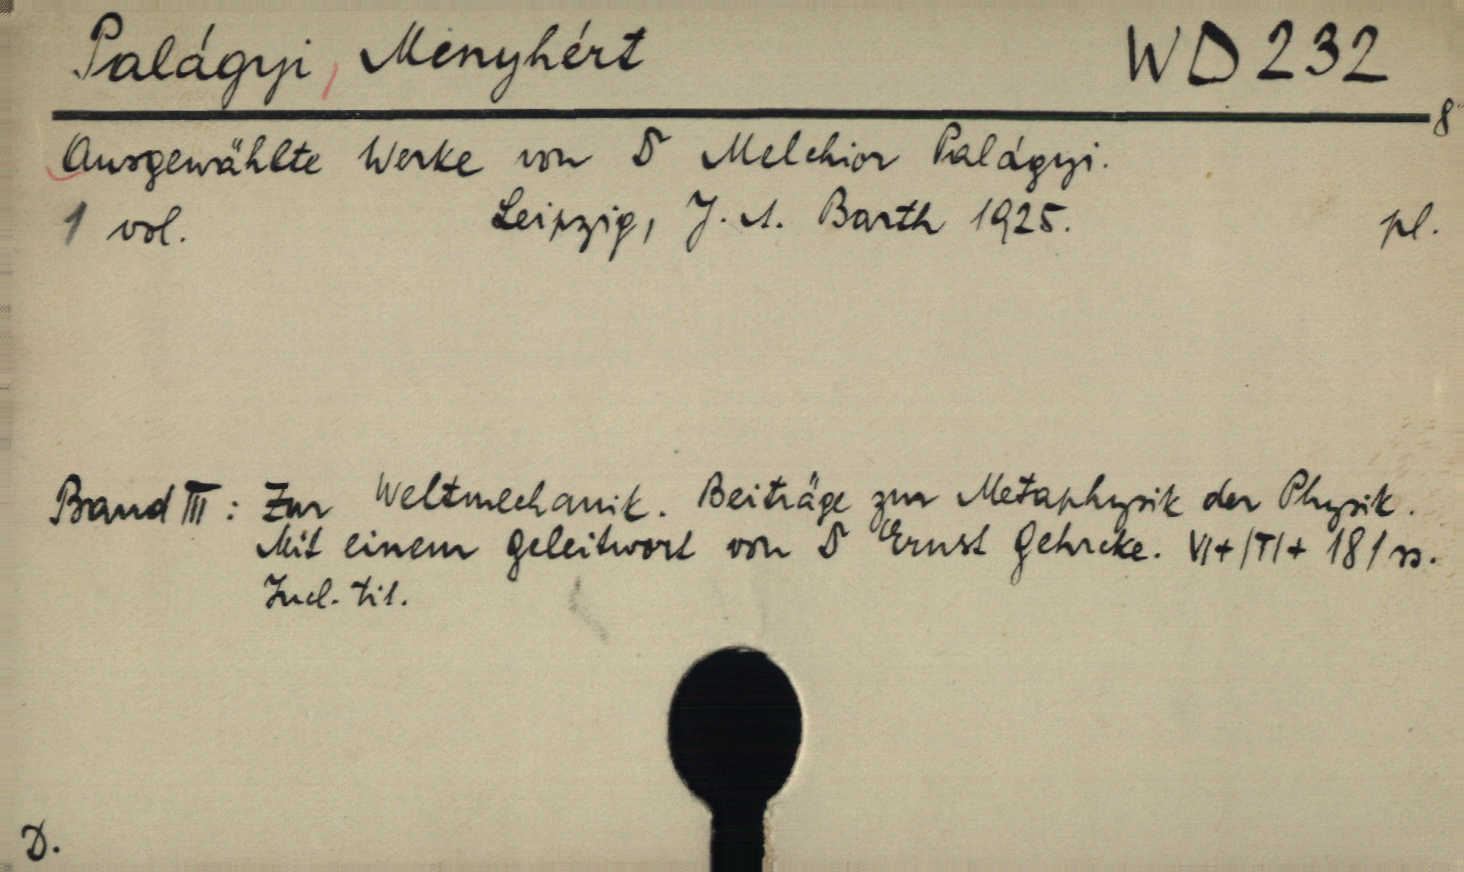 Palágyi, Menyhért WD 232
8°
Ausgewählte Werke von Dr Melchior Palágyi.
1 vol. Leipzig, J. A. Barth 1925. pl.
Band III: Zur Weltmechanik. Beiträge zur Metaphysik der Physik.
Mit einem Geleitwort von Dr Ernst Gehrcke. VI+/T/+ 181 ss.
Incl. tit.
D.